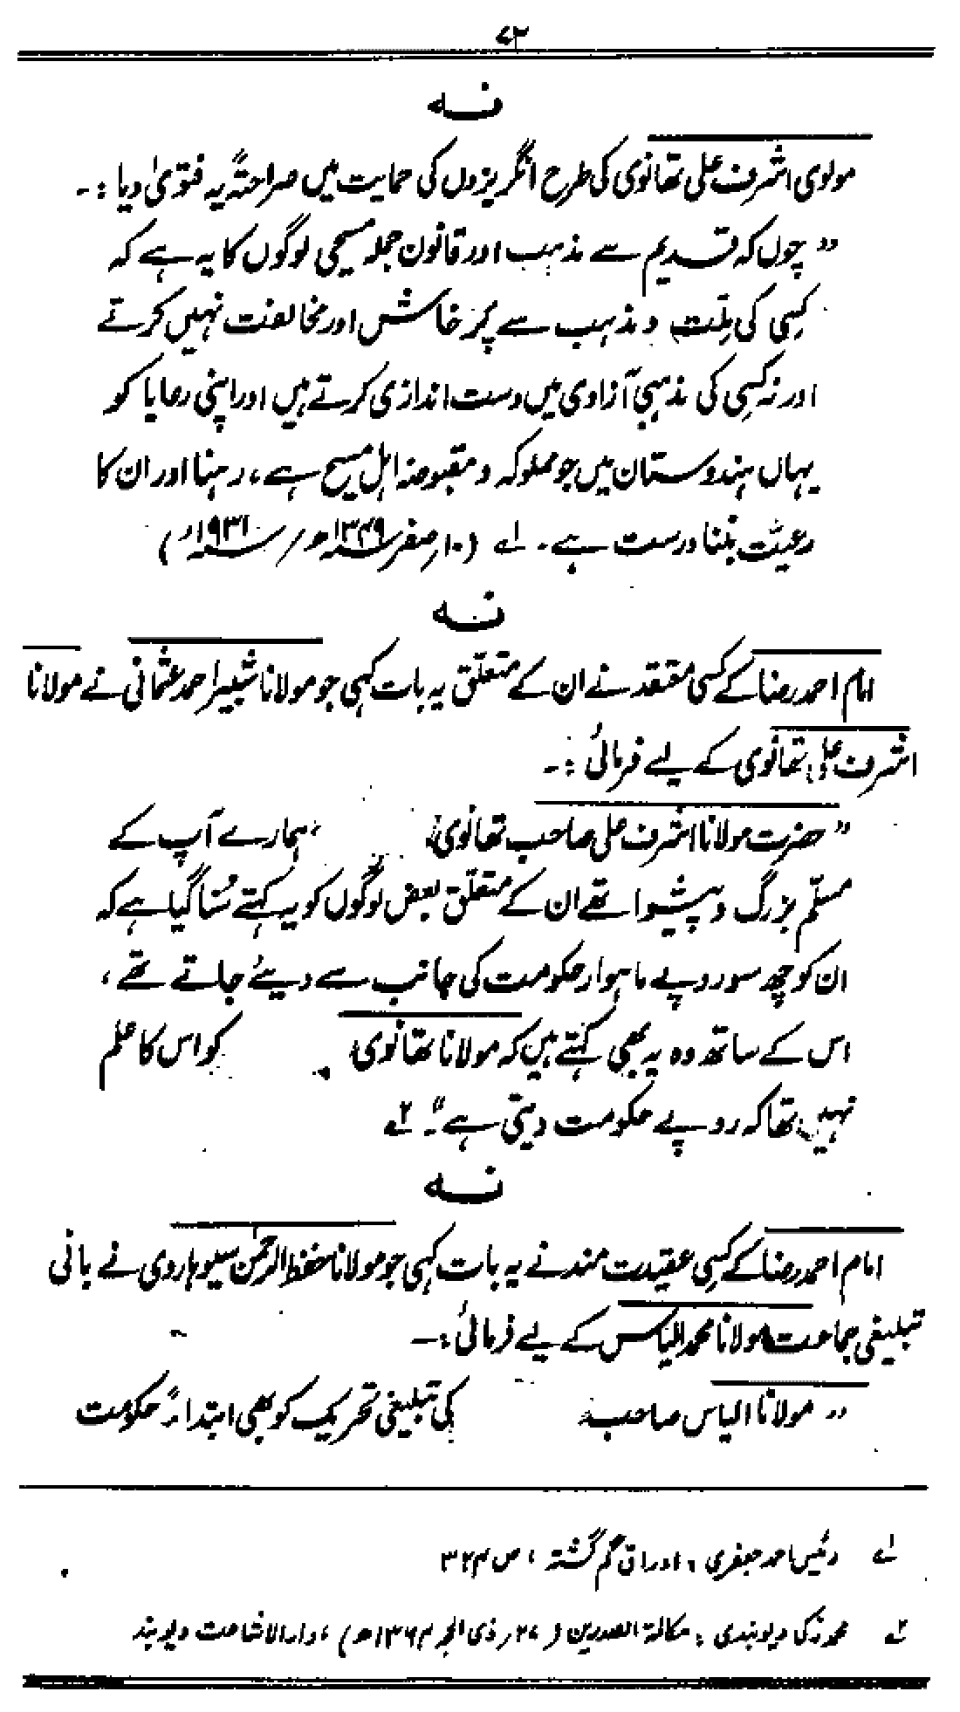 ۷۲
نــہ
مولوی اشرف علی تھانوی کی طرح انگریزوں کی حمایت میں صراحتاً یہ فتویٰ دیا :۔
" چوں کہ قدیم سے مذہب اور قانون جملہ مسیحی لوگوں کا یہ ہے کہ
کسی کی ملّت و مذہب سے پُرخاش اور مخالفت نہیں کرتے
اور نہ کسی کی مذہبی آزادی میں دست اندازی کرتے ہیں اور اپنی رعایا کو
یہاں ہندوستان میں جو مملوکہ و مقبوضہ اہل مسیح ہے، رہنا اور ان کا
رعیّت بننا درست ہے۔ ۱ے (۱۰؍صفر ۱۳۴۹ھ/ ۱۹۳۱ء)
نــہ
امام احمد رضا کے کسی معتقد نے ان کے متعلّق یہ بات کہی جو مولانا شبیر احمد عثمانی نے مولانا
اشرف علی تھانوی کے لیے فرمائی :۔
" حضرت مولانا اشرف علی صاحب تھانوی، ہمارے آپ کے
مسلّم بزرگ و پیشوا تھے ان کے متعلّق بعض لوگوں کو یہ کہتے سُنا گیا ہے کہ
ان کو چھ سو روپے ماہوار حکومت کی جانب سے دیئے جاتے تھے،
اس کے ساتھ وہ یہ بھی کہتے ہیں کہ مولانا تھانوی کو اس کا علم
نہیں تھا کہ روپے حکومت دیتی ہے"۔ ۲ے
نــہ
امام احمد رضا کے کسی عقیدت مند نے یہ بات کہی جو مولانا حفظ الرحمٰن سیوہاروی نے بانی
تبلیغی جماعت مولانا محمد الیاس کے لیے فرمائی :۔
" مولانا الیاس صاحب کی تبلیغی تحریک کو بھی ابتداءً حکومت
۱ے رئیس احمد جعفری ، اوراق گم گشتہ ، ص ۳۲۴
۲ے محمد ذکی دیوبندی : مکالمۃ الصدرین (۲۷؍ ذی الحجہ ۱۳۶۴ھ)، دارالاشاعت دیوبند